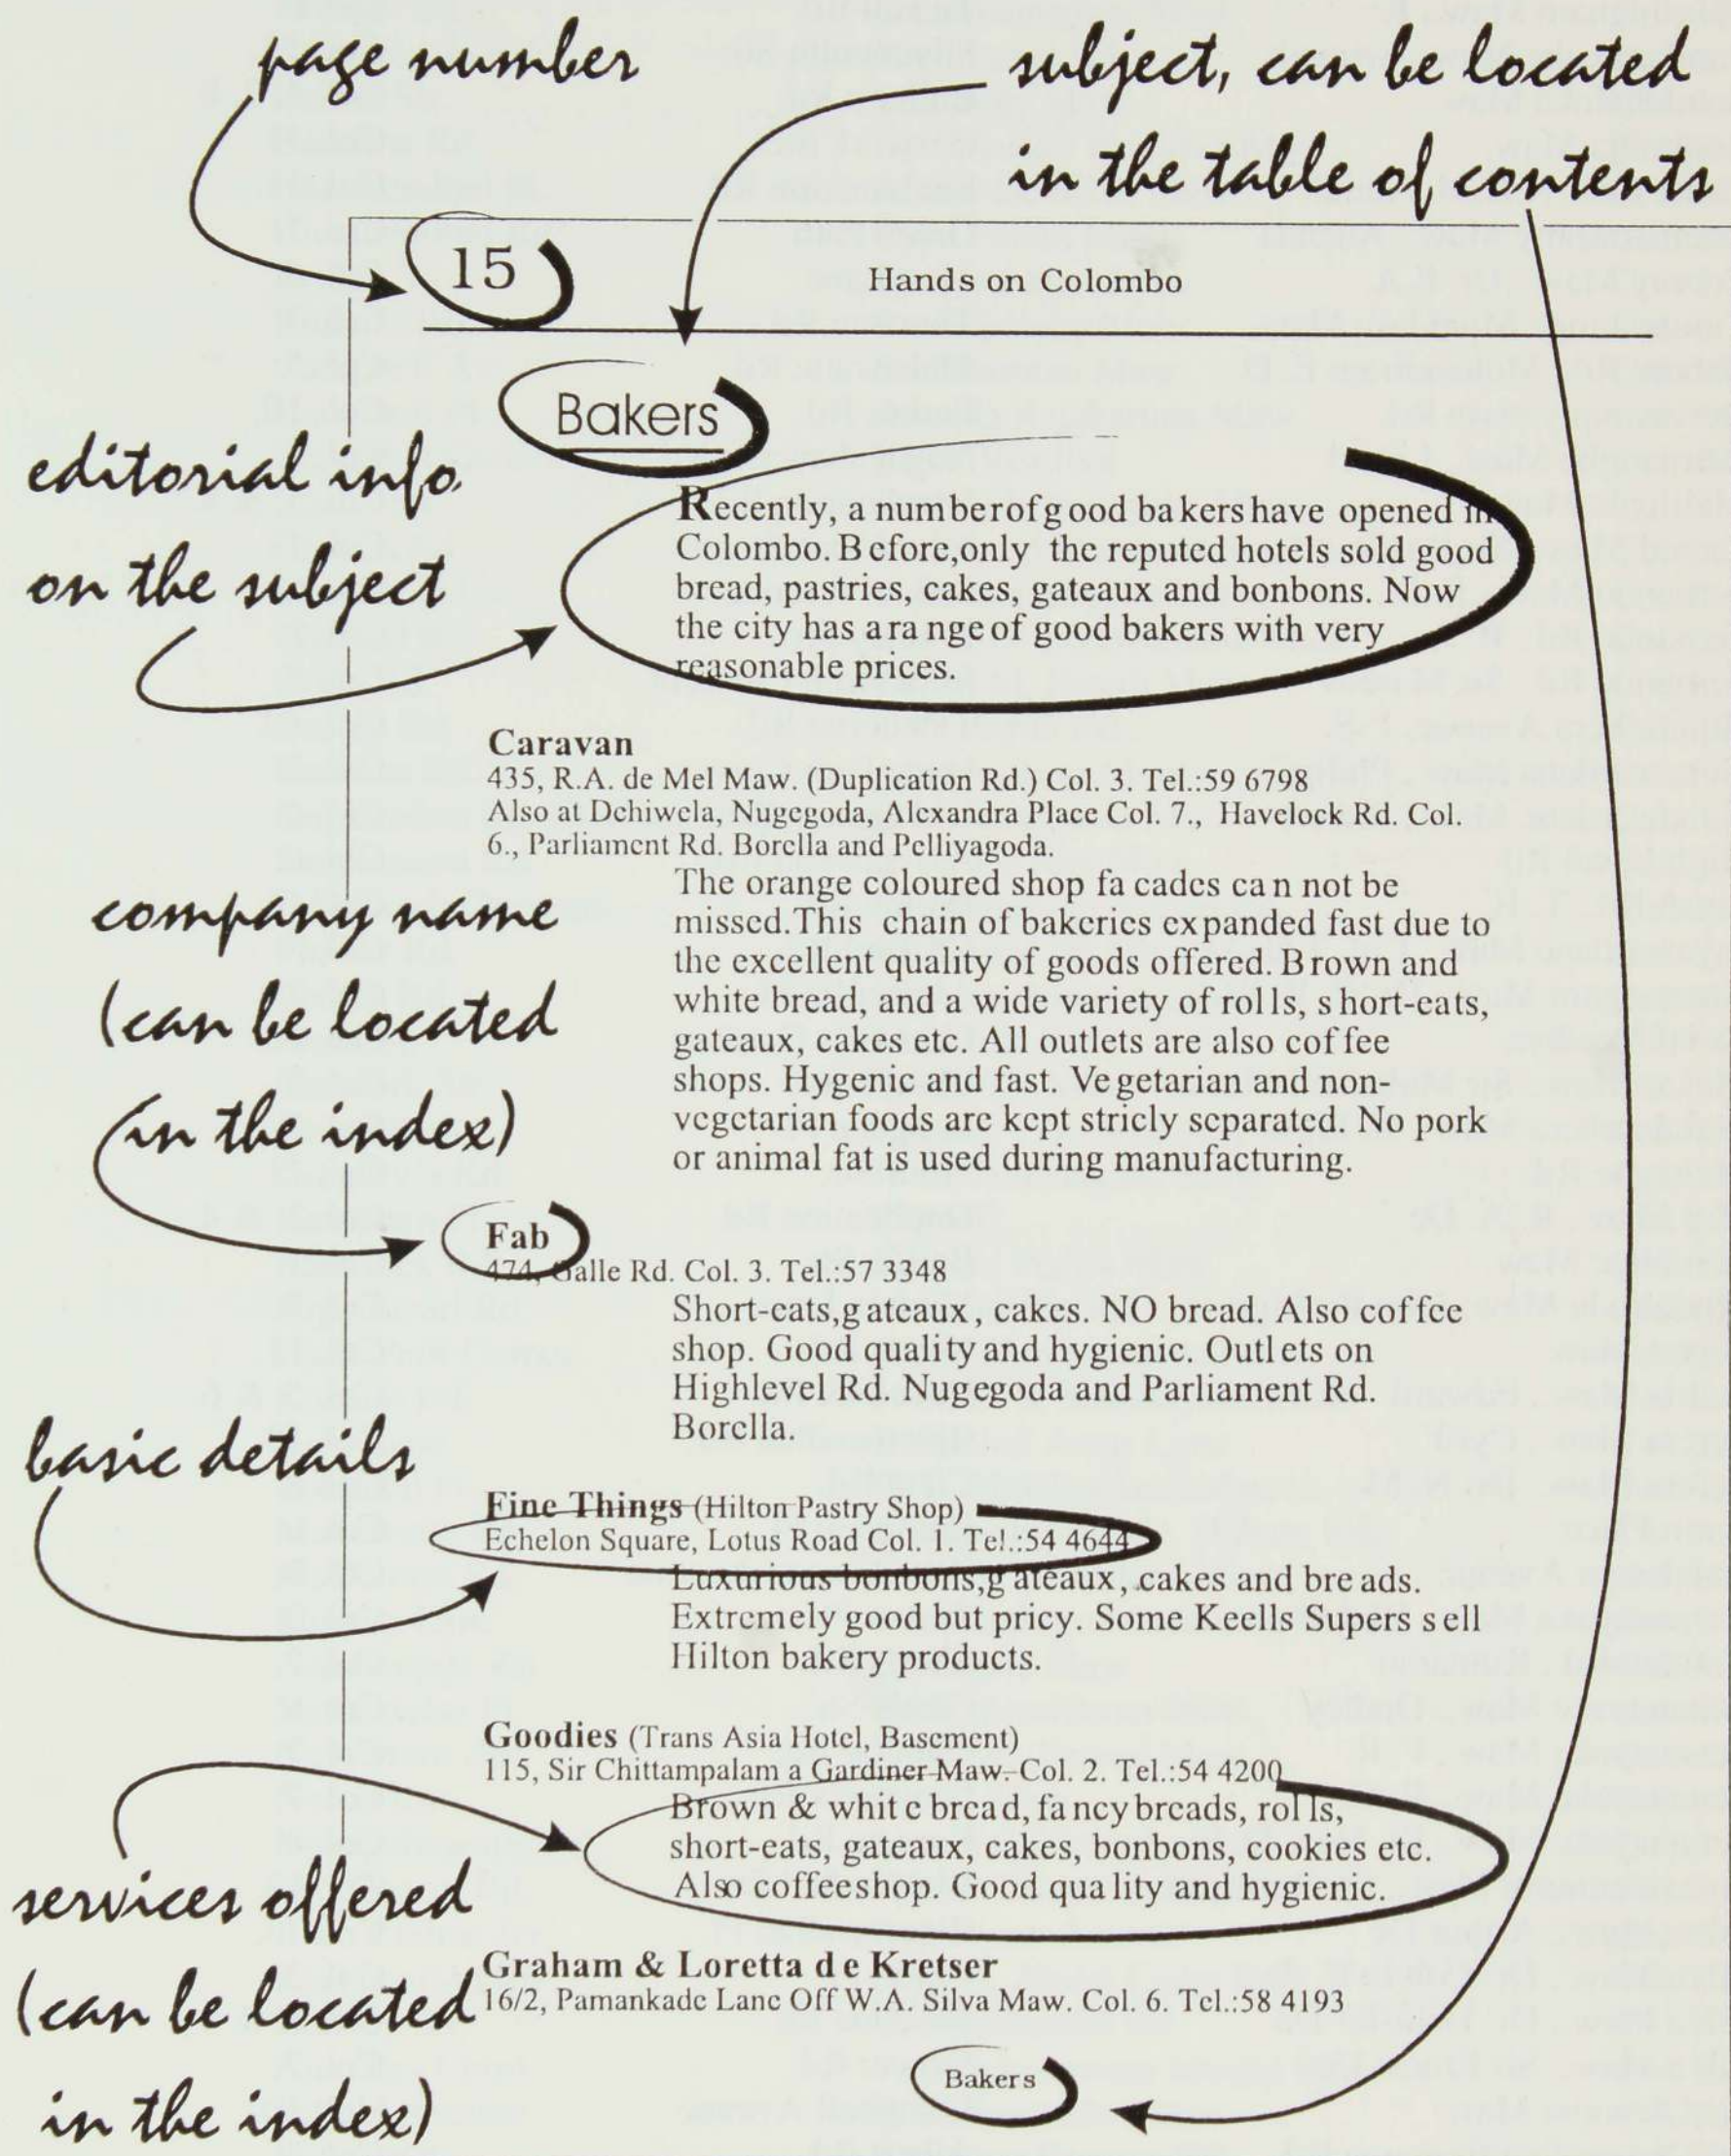 page number
subject, can be located
in the table of contents
15
Hands on Colombo
Bakers
editorial info.
on the subject
Recently, a number of good bakers have opened in
Colombo. Before, only the reputed hotels sold good
bread, pastries, cakes, gateaux and bonbons. Now
the city has a range of good bakers with very
reasonable prices.
Caravan
435, R.A. de Mel Maw. (Duplication Rd.) Col. 3. Tel.:59 6798
Also at Dehiwela, Nugegoda, Alexandra Place Col. 7., Havelock Rd. Col.
6., Parliament Rd. Borella and Pelliyagoda.
company name
(can be located
(in the index)
The orange coloured shop facades can not be
missed. This chain of bakeries expanded fast due to
the excellent quality of goods offered. Brown and
white bread, and a wide variety of rolls, short-eats,
gateaux, cakes etc. All outlets are also coffee
shops. Hygenic and fast. Vegetarian and non-
vegetarian foods are kept stricly separated. No pork
or animal fat is used during manufacturing.
Fab
474, Galle Rd. Col. 3. Tel.:57 3348
Short-eats, gateaux, cakes. NO bread. Also coffee
shop. Good quality and hygienic. Outlets on
Highlevel Rd. Nugegoda and Parliament Rd.
Borella.
basic details
Fine Things (Hilton Pastry Shop)
Echelon Square, Lotus Road Col. 1. Tel.:54 4644
Luxurious bonbons, gateaux, cakes and breads.
Extremely good but pricy. Some Keells Supers sell
Hilton bakery products.
Goodies (Trans Asia Hotel, Basement)
115, Sir Chittampalam a Gardiner Maw. Col. 2. Tel.:54 4200
Brown & white bread, fancy breads, rolls,
short-eats, gateaux, cakes, bonbons, cookies etc.
Also coffeeshop. Good quality and hygienic.
services offered
(can be located
in the index)
Graham & Loretta de Kretser
16/2, Pamankade Lane Off W.A. Silva Maw. Col. 6. Tel.:58 4193
Bakers